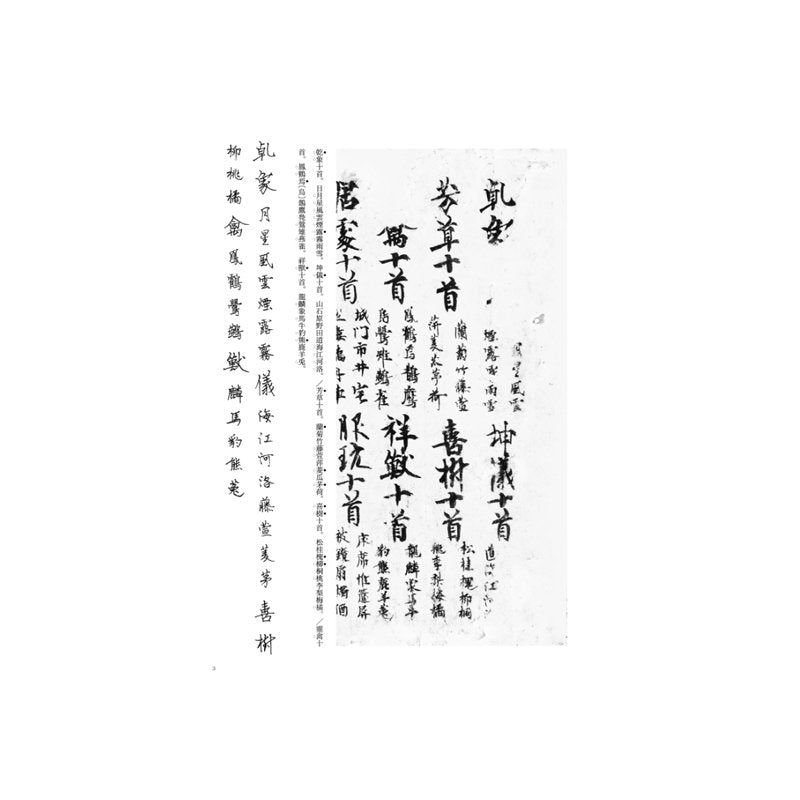 乾象
月星風雲
煙露霧雨雪
坤儀十首
道海江河
芳草十首
蘭菊竹藤萱
萍菱瓜茅荷
喜樹十首
松桂槐柳桐
桃李梨梅橘
禽十首
鳳鶴烏鵲鷹
鳧鶯雉鷰雀
祥獣十首
龍麟象馬牛
豹熊鹿羊兎
居處十首
城門市井宅
服玩十首
床席帷簾屏
被鏡扇燭酒
乾象十首。日月星風雲煙露霧雨雪。坤儀十首。山石原野田道海江河洛。／芳草十首。蘭菊竹藤萱萍菱瓜茅荷。喜樹十首。松桂槐柳桐桃李梨梅橘。／靈禽十
首。鳳鶴烏(鳥)鵲鷹鳧鶯雉燕雀。祥獸十首。龍麟象馬牛豹熊鹿羊兎。
乾象月星風雲煙露霧儀海江河洛藤萱菱茅喜樹
柳桃橘禽鳳鶴鶯鷰獣麟馬豹熊兎
3